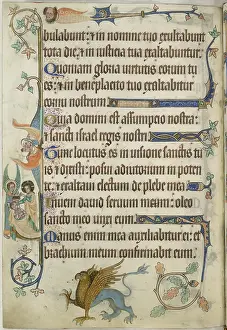 bulabunt: et in nomine tuo exaltabunt
tota die: et in iusticia tua exaltabuntur.
Quoniam gloria virtutis eorum tu
es: et in beneplacito tuo exaltabitur
cornu nostrum
Quia domini est assumpcio nostra:
et sancti israel regis nostri
Tunc locutus es in visione sanctis tu
is et dixisti: posui adiutorium in poten
te: et exaltaui electum de plebe mea
Inueni david seruum meum: oleo
sancto meo unxi eum
Manus enim mea auxiliabitur ei: et
brachium meum confirmabit eum